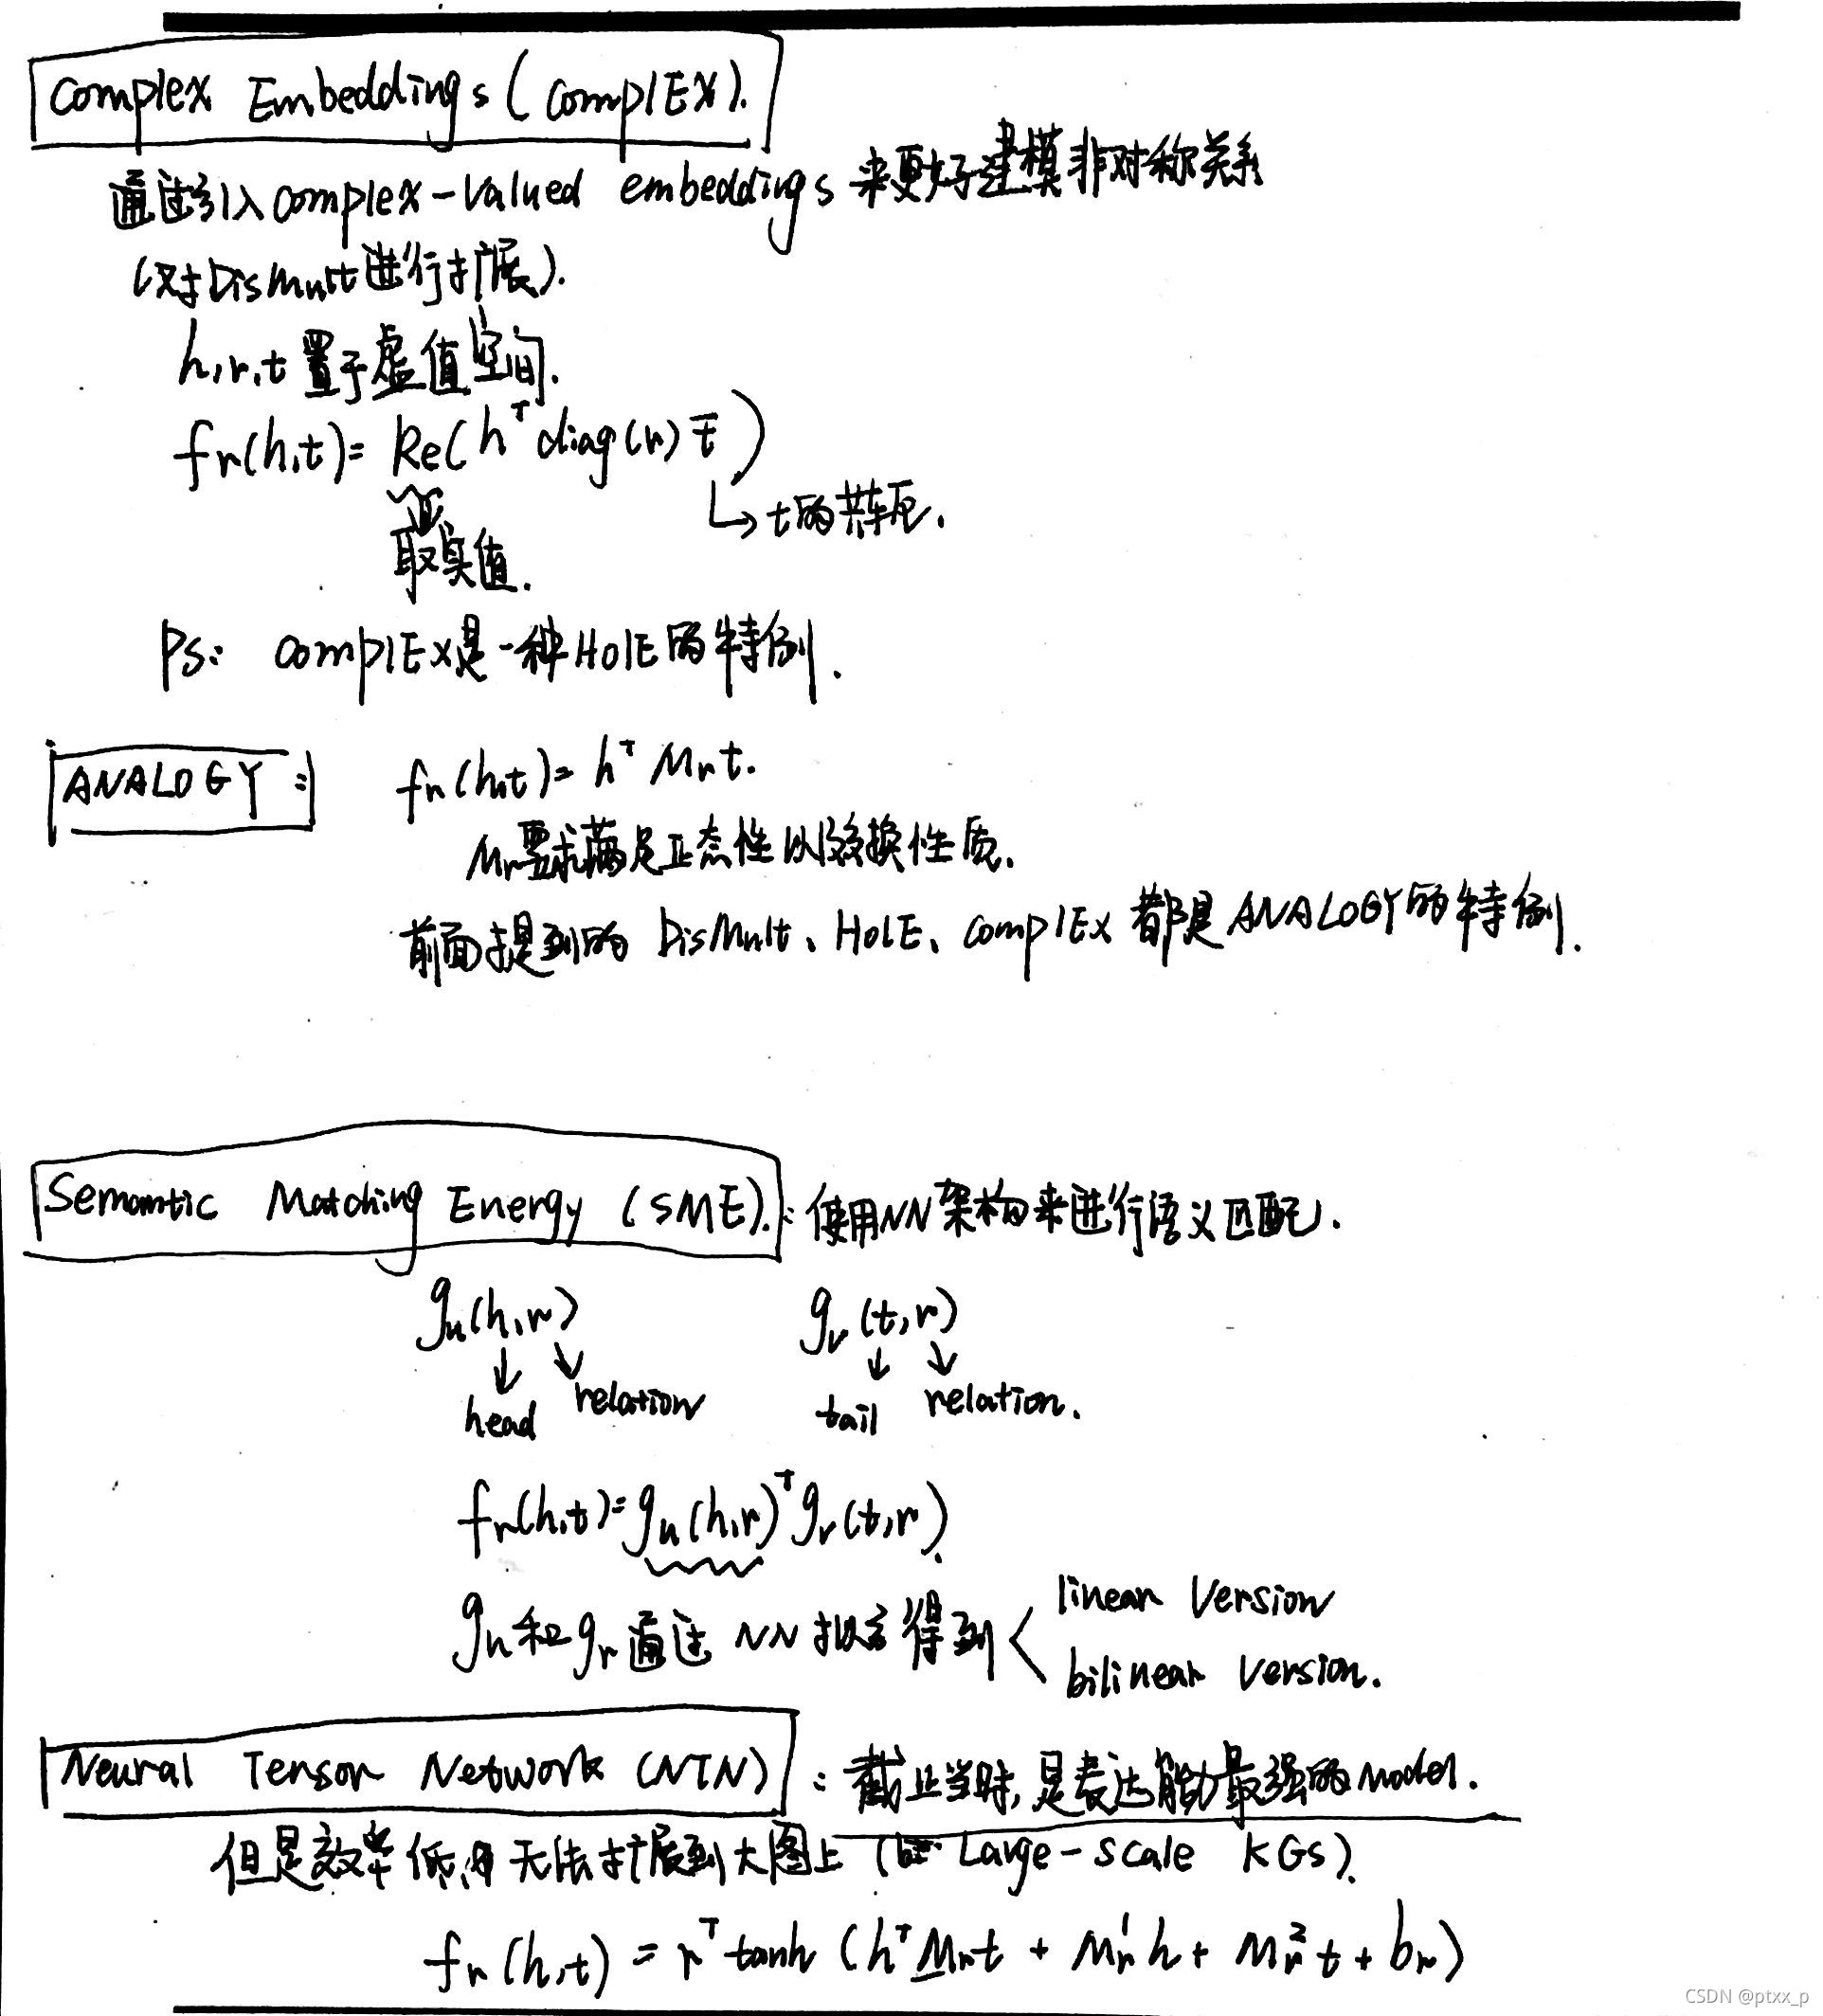 Complex Embeddings (ComplEX).
通过引入complex-valued embeddings 来更好建模非对称关系
(对DisMult进行扩展).
h,r,t 置于虚值空间.
fr(h,t)= Re(h^T diag(r) t̄)
↳ t的共轭.
取实值.
Ps: ComplEX是一种HolE的特例.
ANALOGY:
fr(h,t)= h^T Mr t.
Mr要求满足正态性以及交换性质.
前面提到的 DisMult、HolE、ComplEX 都是ANALOGY的特例.
Semantic Matching Energy (SME).: 使用NN架构来进行语义匹配.
gu(h,r) gv(t,r)
head relation tail relation.
fr(h,t)=gu(h,r)^T gv(t,r).
gu和gr通过 NN 拟合得到 < linear version
bilinear version.
Neural Tensor Network (NTN): 截止当时,是表达能力最强的model.
但是效率低,且无法扩展到大图上 ( Large-scale KGs).
fr(h,t) = r^T tanh (h^T Mr t + Mr^1 h + Mr^2 t + br)
CSDN @ptxx_p